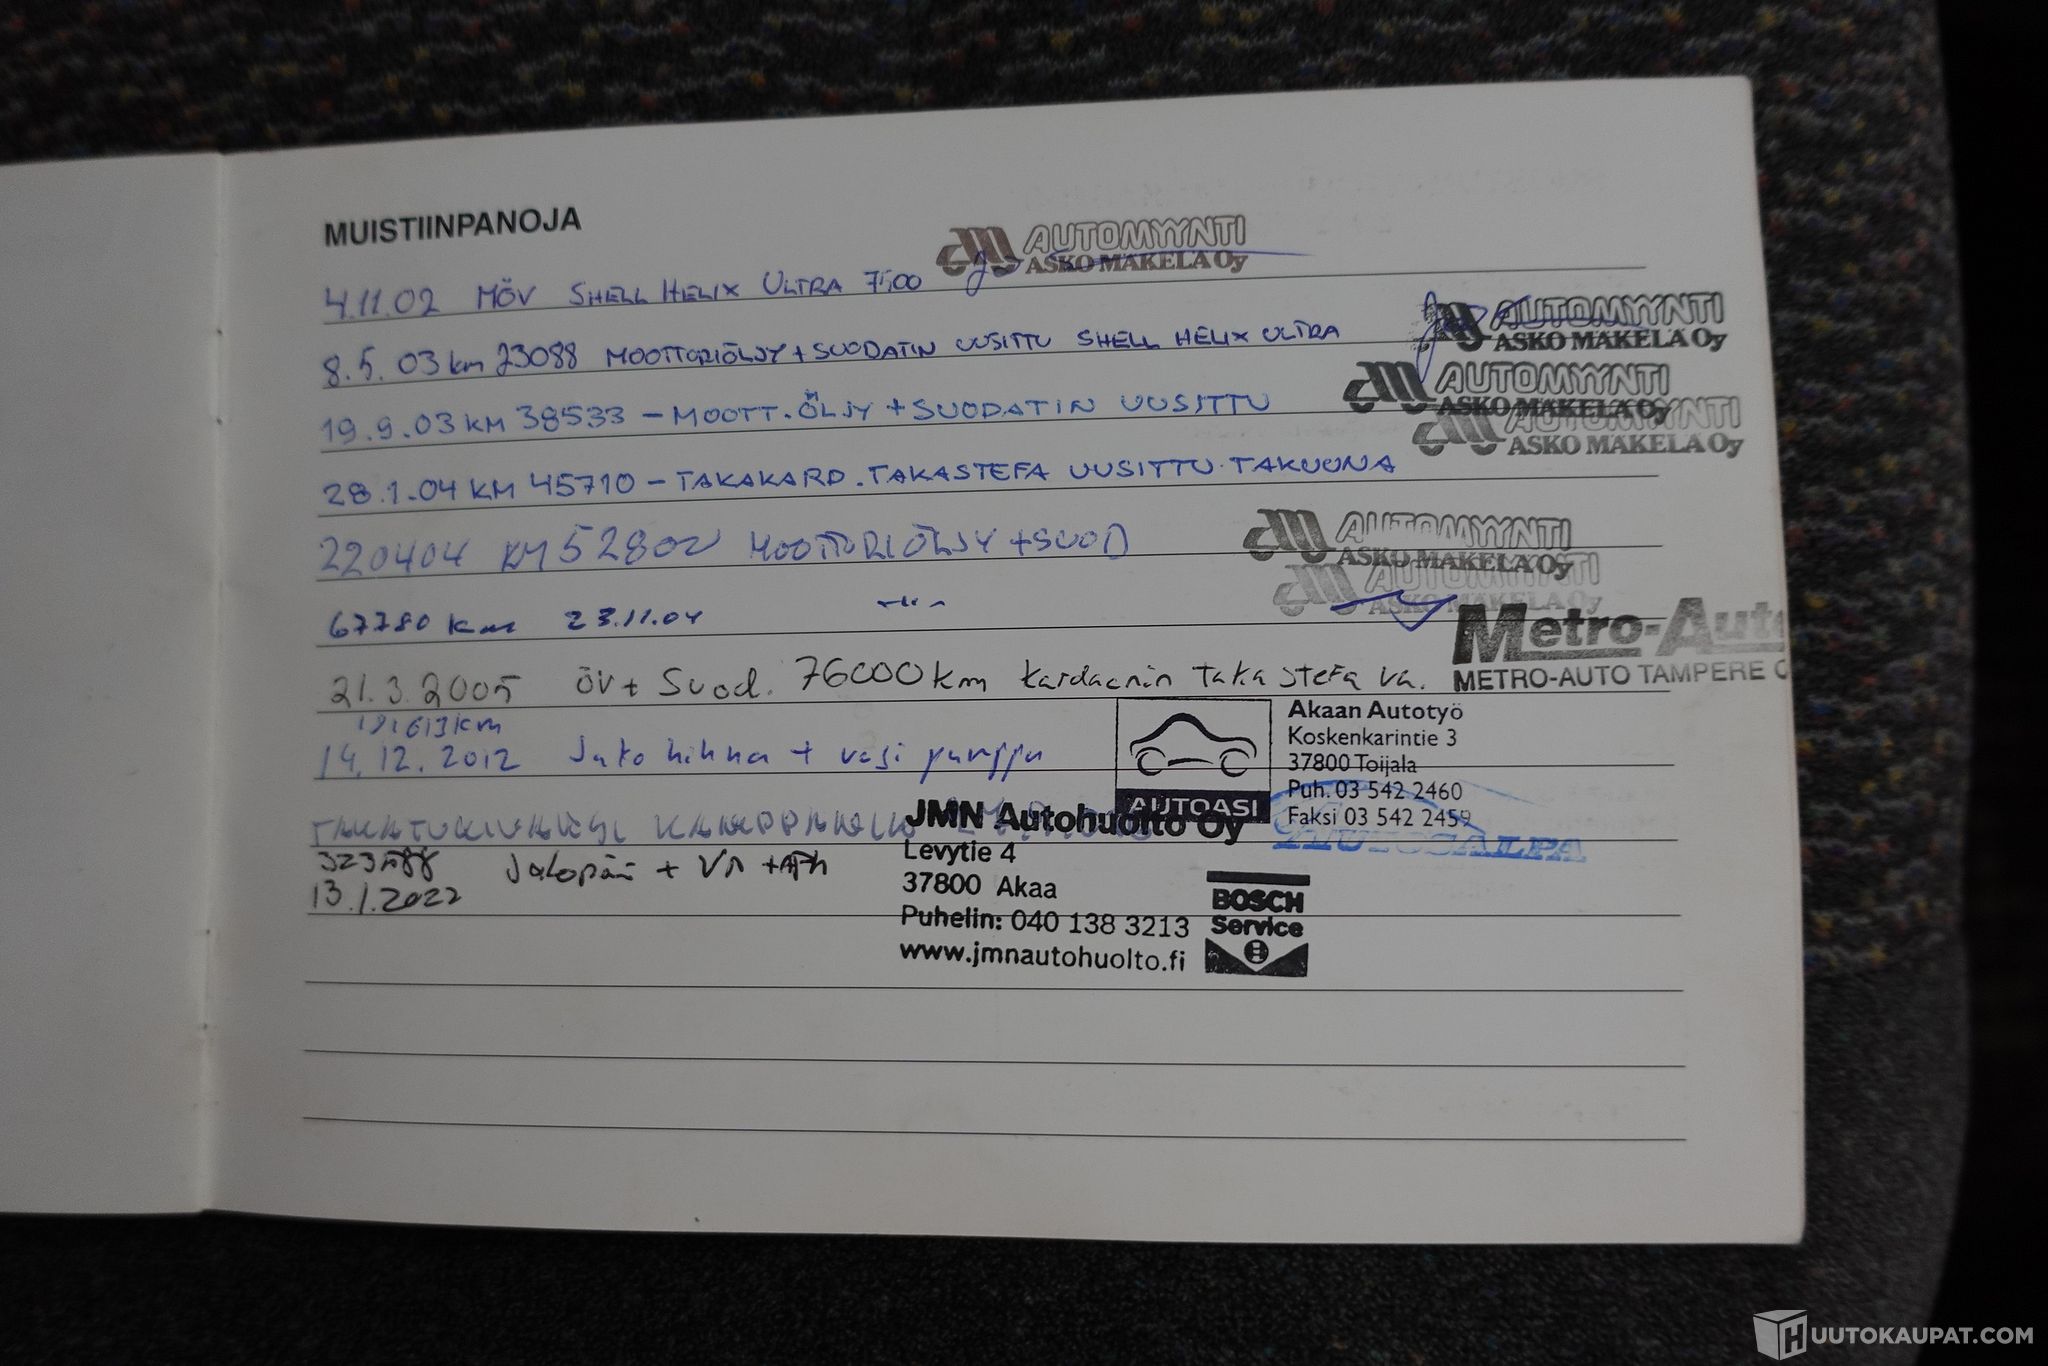 MUISTIINPANOJA
4.11.02 MÖV SHELL HELIX ULTRA 7500 AUTOMYYNTI
ASKO MÄKELÄ Oy
8.5.03 km 23088 MOOTTORIÖLJY + SUODATIN UUSITTU SHELL HELIX ULTRA AUTOMYYNTI
ASKO MÄKELÄ Oy
AUTOMYYNTI
ASKO MÄKELÄ Oy
19.9.03 KM 38533 - MOOTT.ÖLJY + SUODATIN UUSITTU AUTOMYYNTI
ASKO MÄKELÄ Oy
28.1.04 KM 45710 - TAKAKARD. TAKASTEFA UUSITTU TAKUUNA
220404 KM 52802 MOOTTORIÖLJY + SUOD AUTOMYYNTI
ASKO MÄKELÄ Oy
AUTOMYYNTI
ASKO MÄKELÄ Oy
67780 km 23.11.04 -"-
Metro-Auto
METRO-AUTO TAMPERE O
21.3.2005 ÖV + Suod. 76000 km kardaanin taka stefa va.
km
14.12.2012 Jako hihna + vesi pumppu
AUTOASI
Akaan Autotyö
Koskenkarintie 3
37800 Toijala
Puh. 03 542 2460
Faksi 03 542 2459
TAKATUKIVARSI
AUTOSALPA
JMN Autohuolto Oy
Levytie 4
37800 Akaa
Puhelin: 040 138 3213
www.jmnautohuolto.fi
BOSCH
Service
Jakopää + VP
13.1.2022
HUUTOKAUPAT.COM